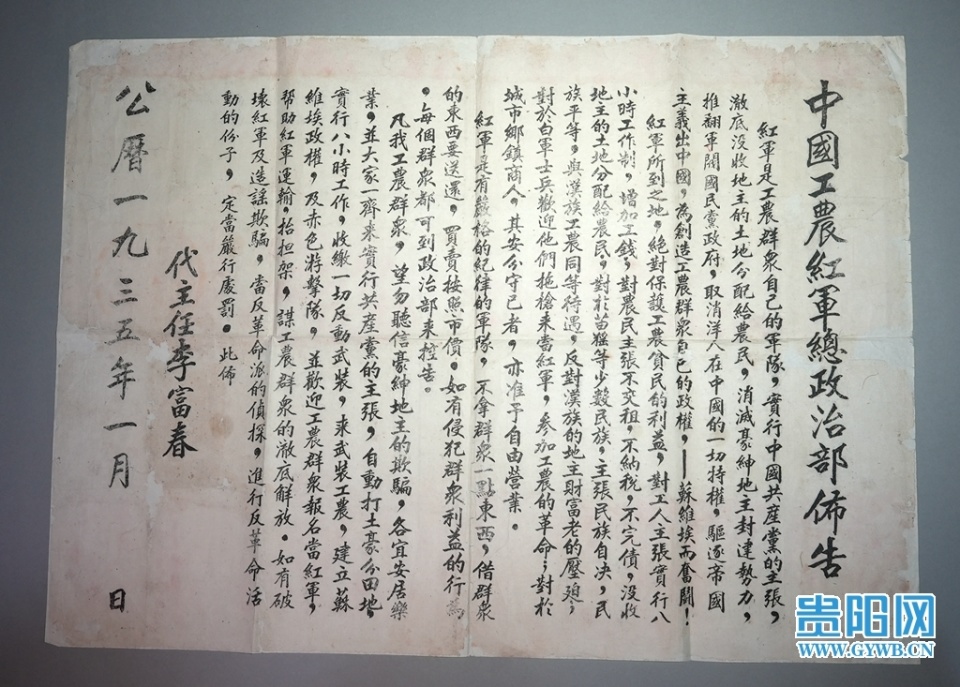 中國工農紅軍總政治部佈告
紅軍是工農群眾自己的軍隊，實行中國共産黨的主張，
澈底没收地主的土地分配給農民，消滅豪紳地主封建勢力，
推翻軍閥國民黨政府，取消洋人在中國的一切特權，驅逐帝國
主義出中國，為創造工農群眾自己的政權，——蘇維埃而奮鬪！
紅軍所到之地，絶對保護工農貧民的利益，對工人主張實行八
小時工作制，增加工錢，對農民主張不交租，不納稅，不完債，没收
地主的土地分配給農民。對於苗猺等少數民族，主張民族自决，民
族平等，與漢族工農同等待遇，反對漢族的地主財富老的壓廹，
對於白軍士兵歡迎他們拖槍來當紅軍，參加工農的革命；對於
城市鄉鎮商人，其安分守已者，亦准予自由營業。
紅軍是有嚴格的紀律的軍隊，不拿群眾一點東西，借群眾
的東西要送還，買賣按照市價。如有侵犯群眾利益的行為
。每個群眾都可到政治部來控告。
凡我工農群眾，望勿聽信豪紳地主的欺騙，各宜安居樂
業，並大家一齊來實行共産黨的主張，自動打土豪分田地，
實行八小時工作，收繳一切反動武裝，來武裝工農，建立蘇
維埃政權，及赤色游擊隊，並歡迎工農群眾報名當紅軍，
帮助紅軍運輸，抬担架，謀工農群眾的澈底解放。如有破
壞紅軍及造謡欺騙，當反革命派的偵探，進行反革命活
動的份子，定當嚴行處罰。此佈
代主任李富春
公曆一九三五年一月 日
贵阳网
WWW.GYWB.CN